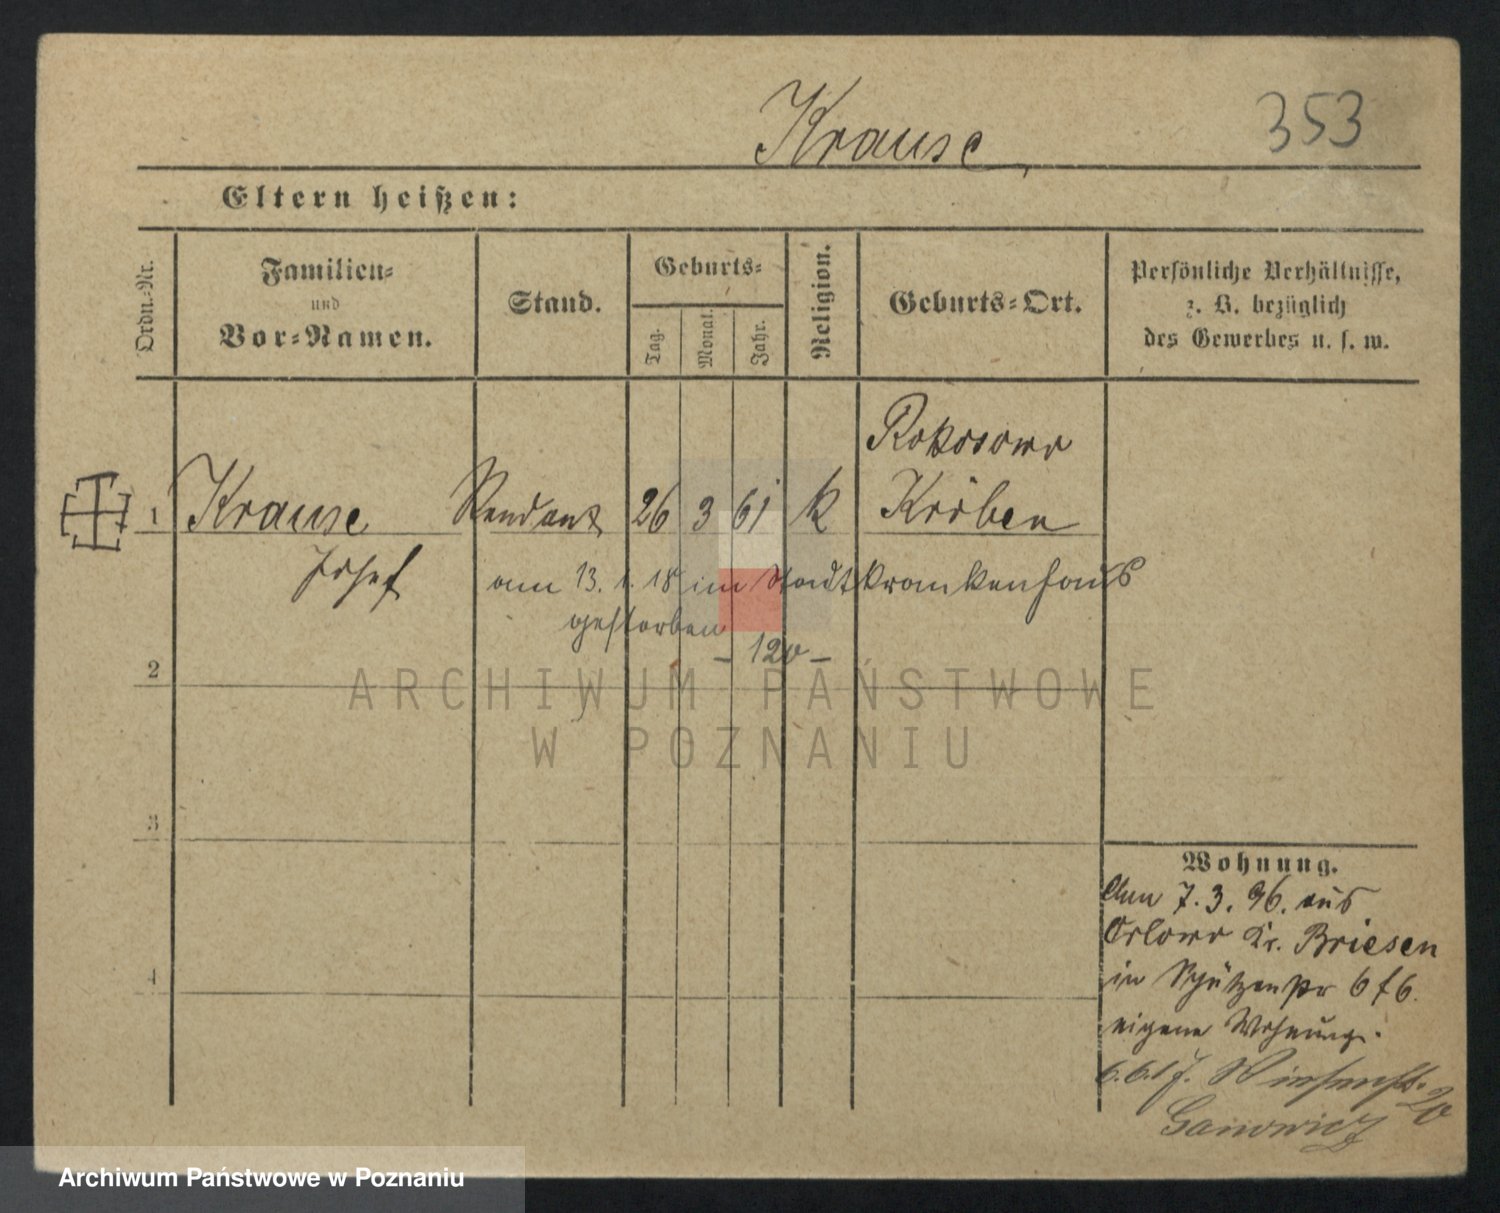 Krause
353
Eltern heißen:
Ordn.-Nr.
Familien-
und
Vor-Namen.
Stand.
Geburts-
Tag.
Monat.
Jahr.
Religion.
Geburts-Ort.
Persönliche Verhältnisse,
z. B. bezüglich
des Gewerbes u. s. w.
Rokosowo
1 Krause Rendant 26 3 61 k Kröben
Josef am 13. 1. 18 im Stadtkrankenhaus
gestorben
- 120 -
2
ARCHIWUM PAŃSTWOWE
W POZNANIU
3
4
Wohnung.
Am 7. 3. 96. aus
Orlowo Kr. Briesen
in Schützenstr 6 f 6.
eigene Wohnung.
6.6.17. 20
Archiwum Państwowe w Poznaniu